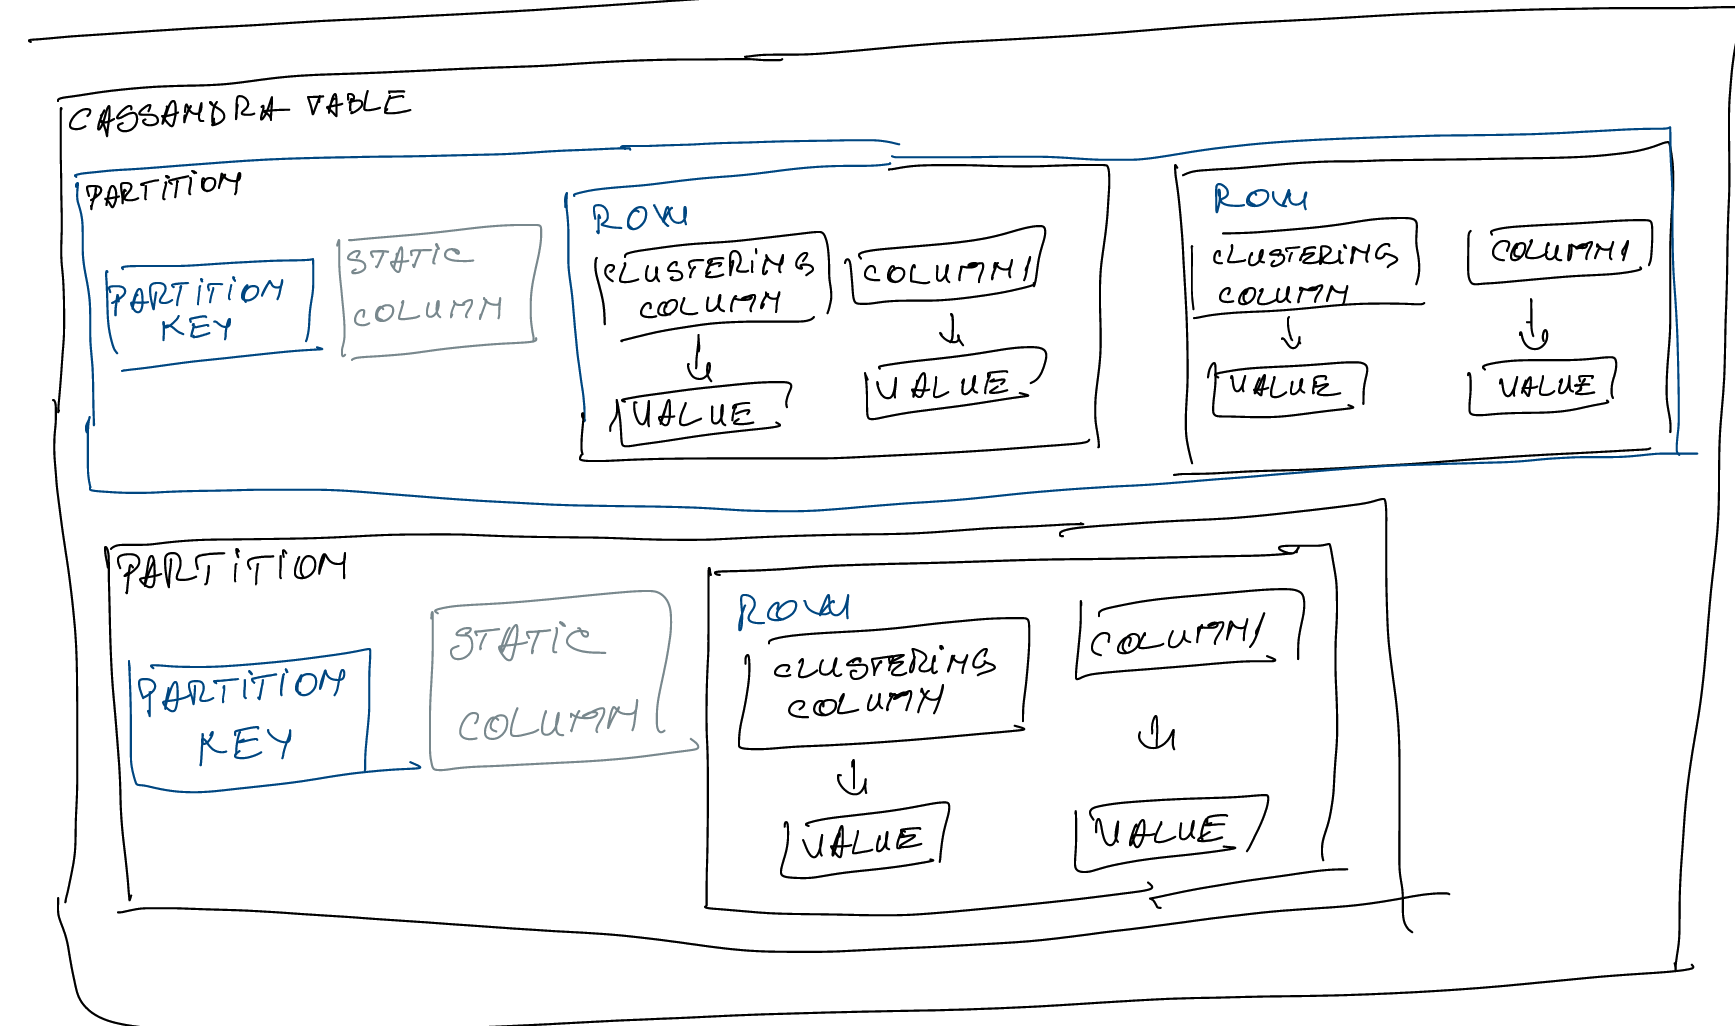 CASSANDRA TABLE
PARTITION
PARTITION
KEY
STATIC
COLUMN
ROW
CLUSTERING
COLUMN
VALUE
COLUMN1
VALUE
ROW
CLUSTERING
COLUMN
VALUE
COLUMN1
VALUE
PARTITION
PARTITION
KEY
STATIC
COLUMN
ROW
CLUSTERING
COLUMN
VALUE
COLUMN1
VALUE